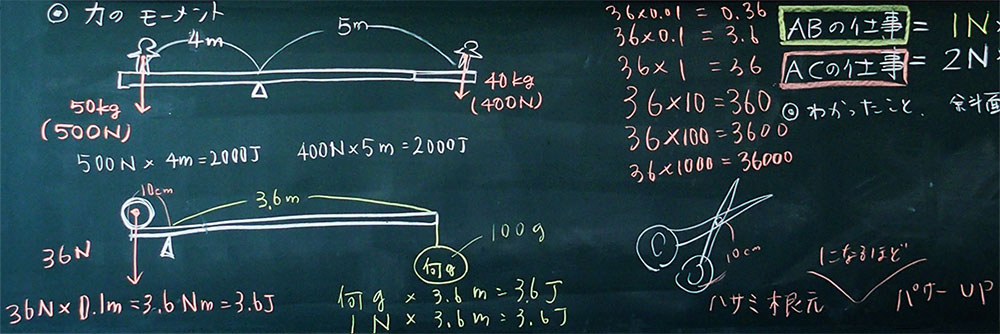 ◎ 力の モーメント
4m
5m
50kg
(500N)
40kg
(400N)
500N × 4m = 2000J
400N×5m = 2000J
10cm
3.6m
36N
100g
何g
36N× 0.1m=3.6Nm=3.6J
何g × 3.6m = 3.6J
1N × 3.6m = 3.6J
36×0.01 = 0.36
36×0.1 = 3.6
36×1 = 36
36×10 = 360
36×100 = 3600
36×1000 = 36000
ABの仕事 = 1N
ACの仕事 = 2N
◎ わかったこと、 斜面
10cm
ハサミ 根元
になるほど
パワー UP